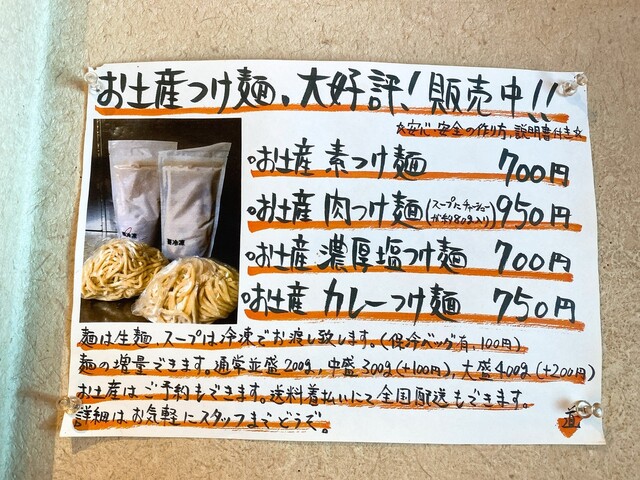 お土産つけ麺、大好評！販売中!!
☆安心、安全の作り方、説明書付き☆
•お土産 素つけ麺 700円
•お土産 肉つけ麺(スープにチャーシューが約80g入り) 950円
•お土産 濃厚塩つけ麺 700円
•お土産 カレーつけ麺 750円
麺は生麺、スープは冷凍でお渡し致します。(保冷バッグ有、100円)
麺の増量できます。通常並盛200g、中盛300g(+100円)、大盛400g(+200円)
お土産はご予約もできます。送料着払いにて全国配送もできます。
詳細はお気軽にスタッフまでどうぞ。
道